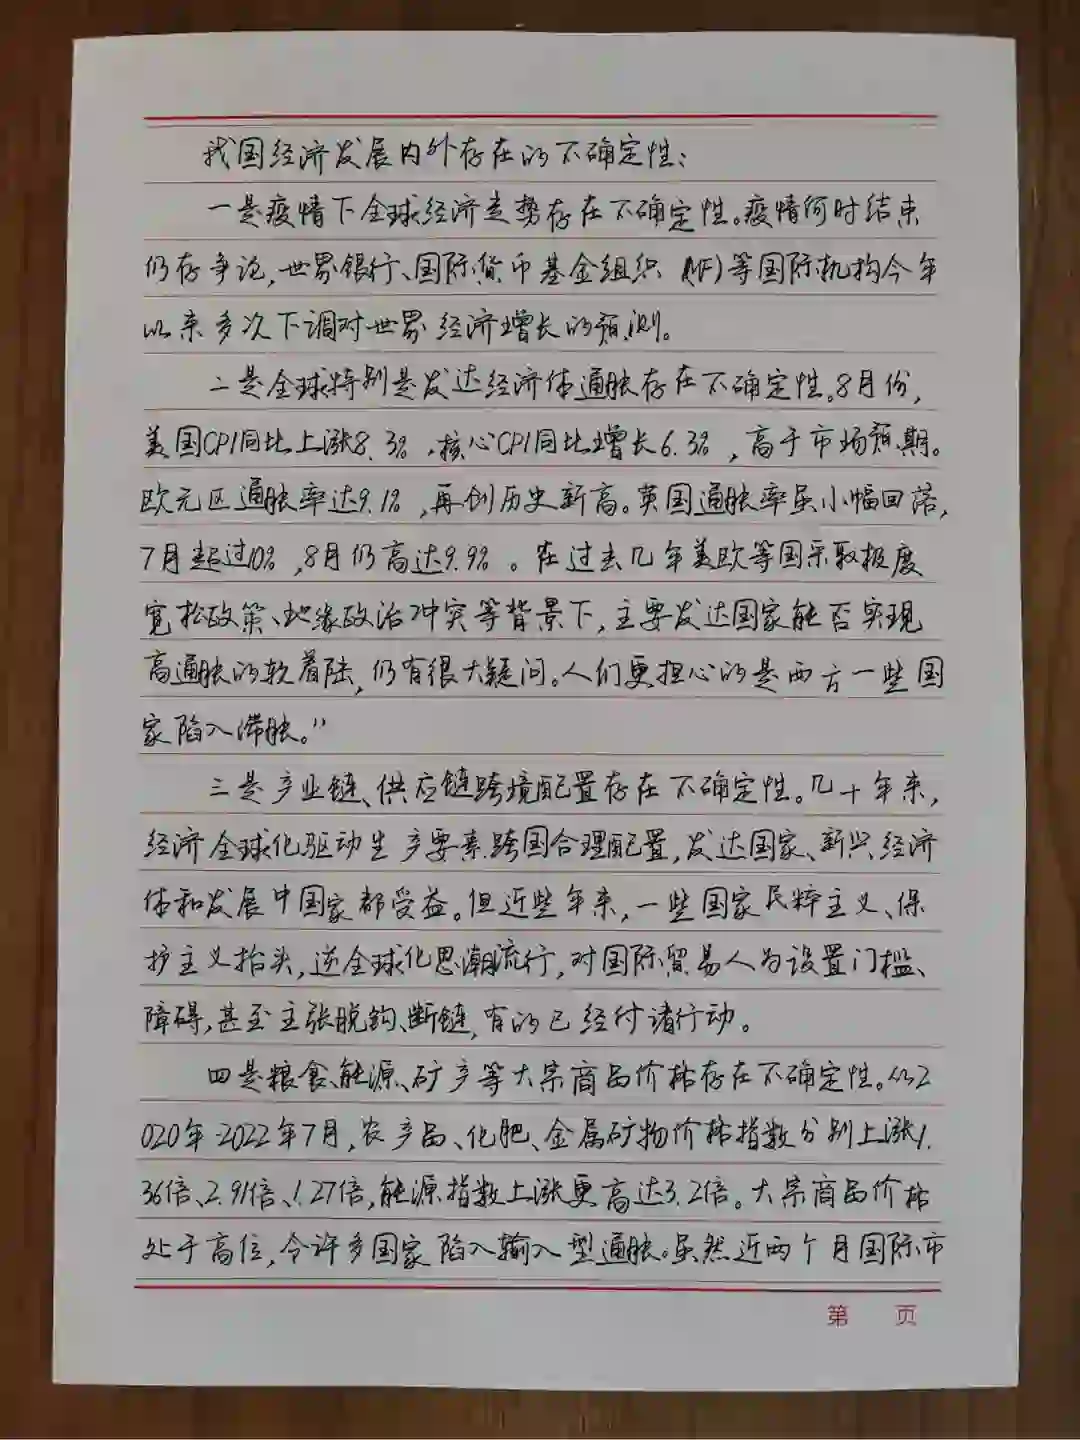 我国经济发展内外存在的不确定性：
一是疫情下全球经济走势存在不确定性。疫情何时结束
仍存争论，世界银行、国际货币基金组织（MF）等国际机构今年
以来多次下调对世界经济增长的预测。
二是全球特别是发达经济体通胀存在不确定性。8月份，
美国CPI同比上涨8.3%，核心CPI同比增长6.3%，高于市场预期。
欧元区通胀率达9.1%，再创历史新高。英国通胀率虽小幅回落，
7月超过10%，8月仍高达9.9%。在过去几年美欧等国采取极度
宽松政策、地缘政治冲突等背景下，主要发达国家能否实现
高通胀的软着陆，仍有很大疑问。人们更担心的是西方一些国
家陷入滞胀。”
三是产业链、供应链跨境配置存在不确定性。几十年来，
经济全球化驱动生产要素跨国合理配置，发达国家、新兴经济
体和发展中国家都受益。但近些年来，一些国家民粹主义、保
护主义抬头，逆全球化思潮流行，对国际贸易人为设置门槛、
障碍，甚至主张脱钩、断链，有的已经付诸行动。
四是粮食、能源、矿产等大宗商品价格存在不确定性。从2
020年2022年7月，农产品、化肥、金属矿物价格指数分别上涨1.
36倍、2.91倍、1.27倍，能源指数上涨更高达3.2倍。大宗商品价格
处于高位，令许多国家陷入输入型通胀。虽然近两个月国际市
第 页